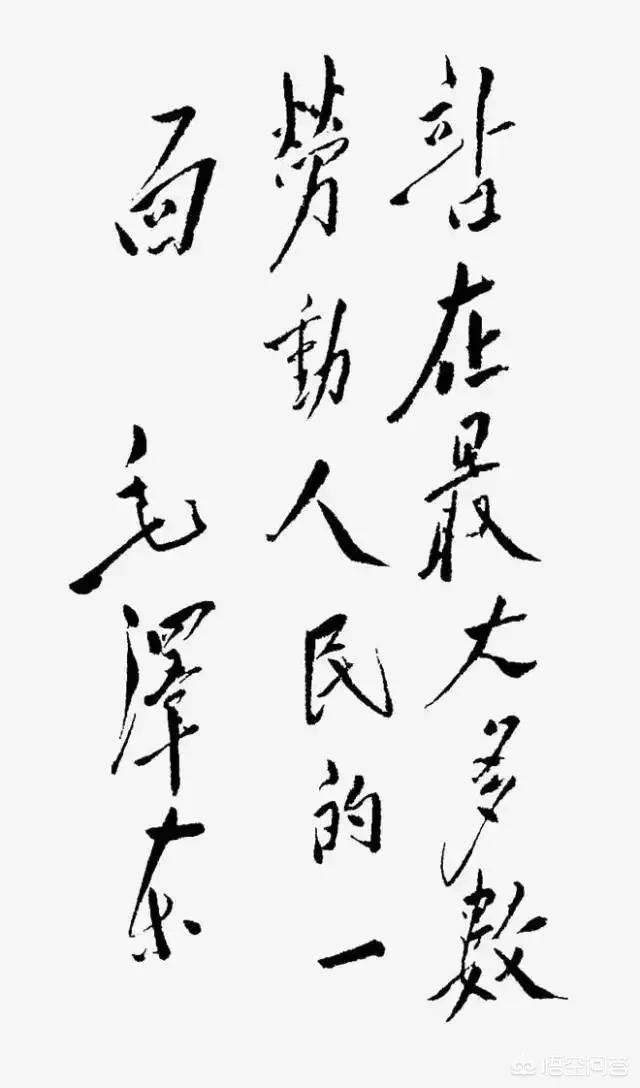 站在最大多數
勞動人民的一
面 毛澤东
悟空问答